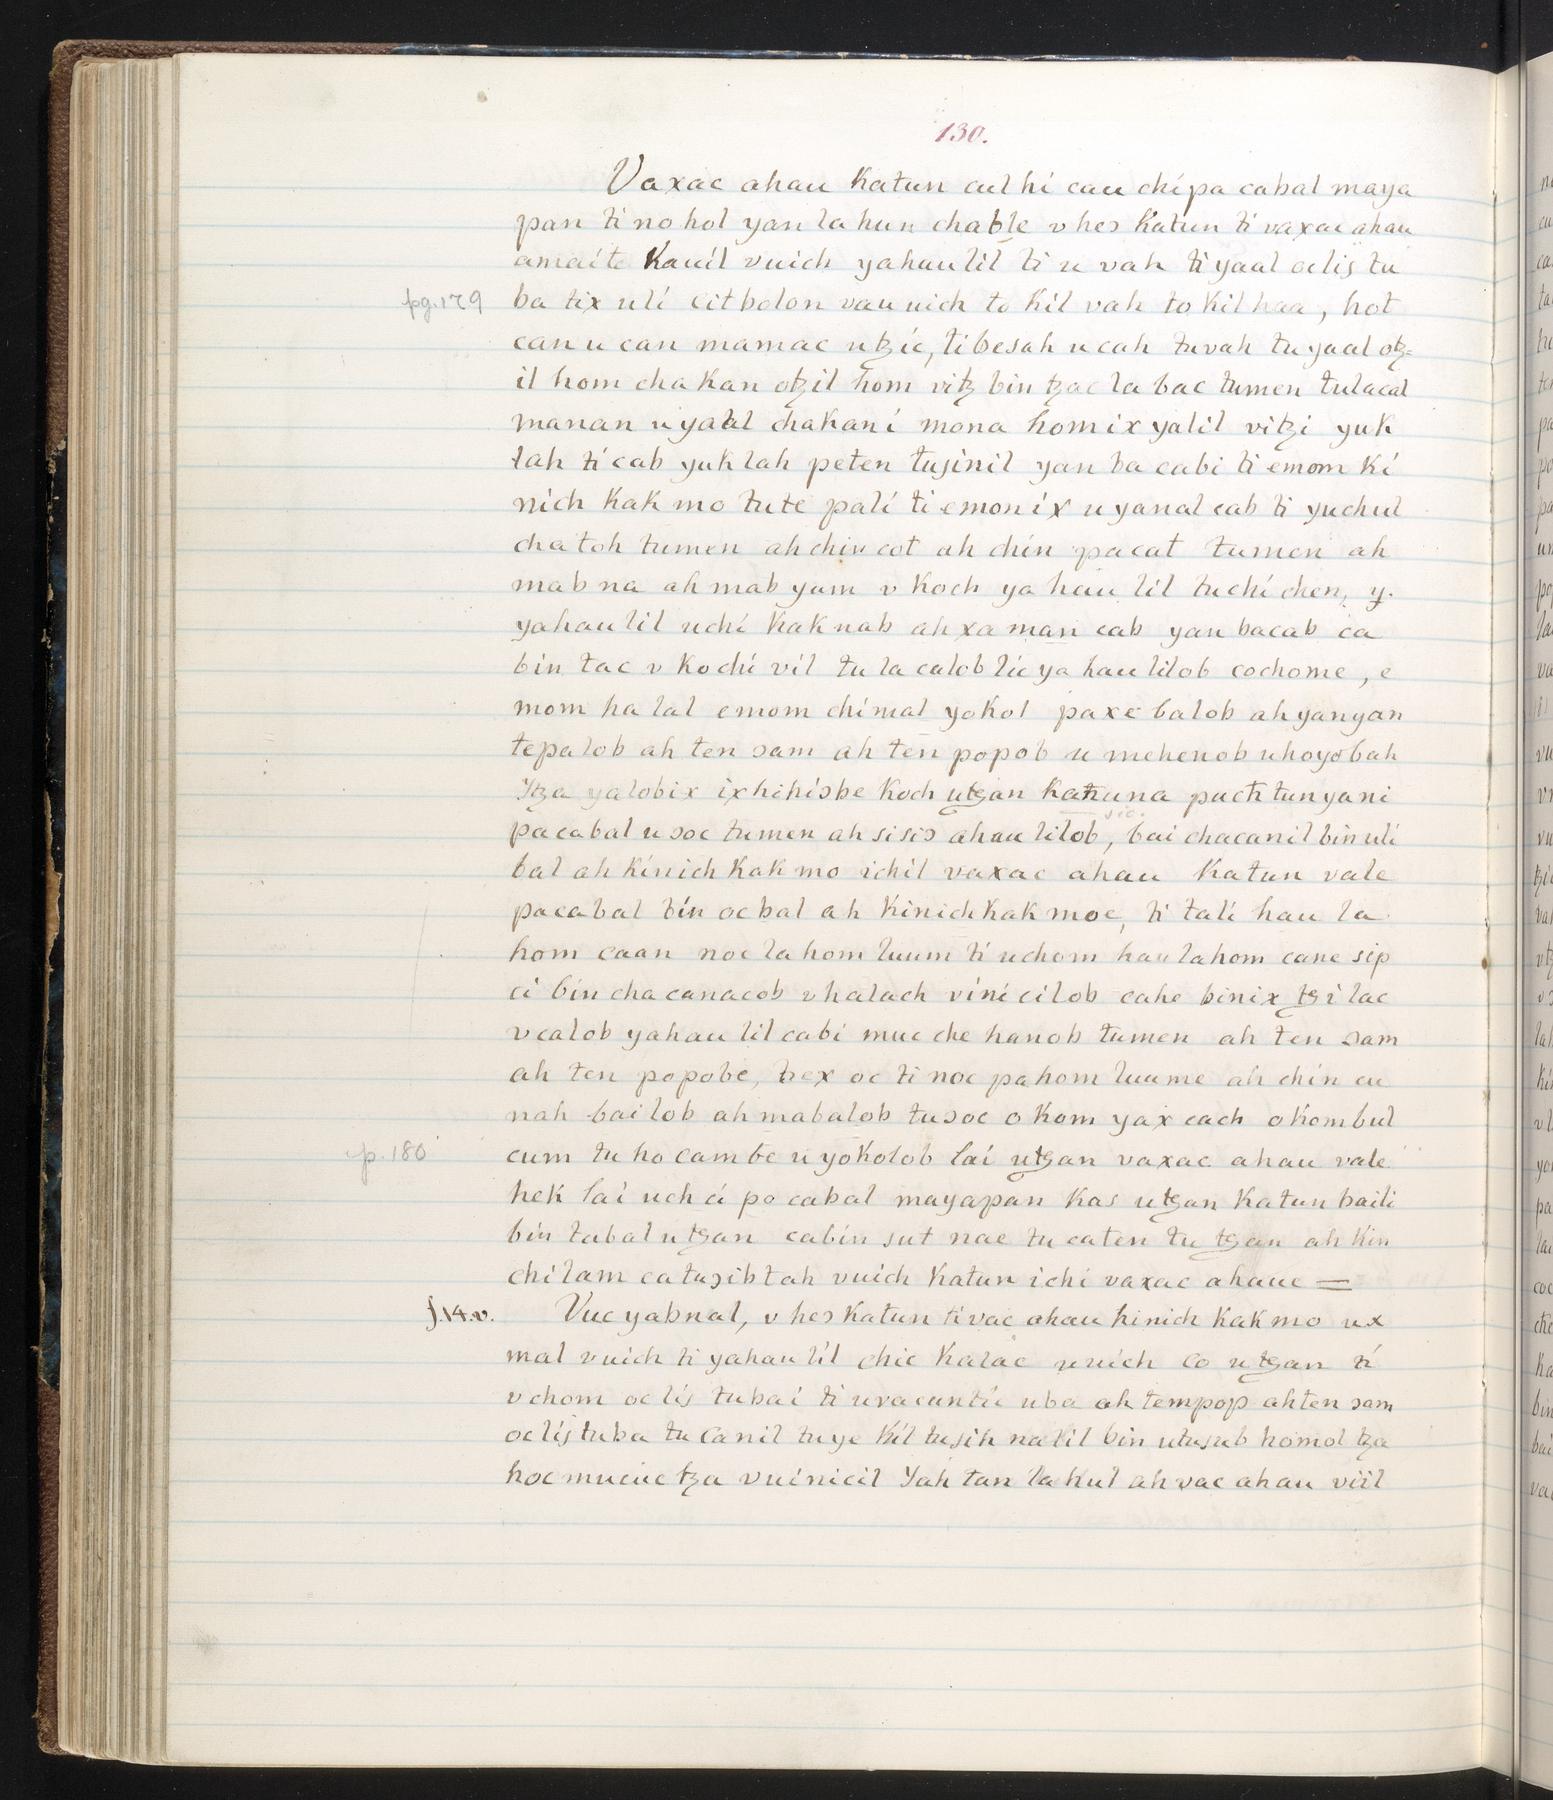 130.
Vaxac ahau Katun culhi cau chipa cabal maya
pan ti no hol yan la hun chable v hes Katun ti vaxac ahau
amaite Kauil vuich yahaulil ti u vah ti yaal oclis tu
pg. 179 ba tix uli citbolon vau uich to Kil vah to Kil haa, hot
can u can mamac utzic, tibesah u cah tuvah tu yaal otz=
il hom cha Kan otzil hom vitz bin tzac la bac tumen tulacal
manan u yaal chakani mona homix yalil vitzi yuk
lah ti cab yuk lah peten tusinil yan ba cabi ti emom Ki
nich Kak mo tute pali ti emonix u yanal cab ti yuchul
cha toh tumen ah chin cot ah chin pacat tumen ah
mab na ah mab yum v Koch ya hau lil tuchi chen, y.
yahaulil uchi Kak nab ah xa man cab yan bacab ca
bin tac v Kochi vil tu la calob lic ya hau lilob cochome, e
mom ha lal emom chimal yoKol paxe balob ah yanyan
tepalob ah ten sam ah ten popob u mehenob uhoyobah
Ytza yalobix ixhihisbe Koch utzan Katuna puch tunyani
sic.
pacabal u soc tumen ah sisis ahau lilob, bai chacanil bin uli
bal ah Kinich Kak mo ichil vaxac ahau Katun vale
pacabal bin ocbal ah Kinich Kak moe, ti tali hau la
hom caan noc la hom luum ti uchom hau lahom cane sip
ci bin cha canacob v halach vini cilob cahe binix tzilac
v calob yahau lil cabi muc che hanob tumen ah ten sam
ah ten popobe, bex oc ti noc pahom luume ah chin cu
nah bailob ah mabalob tusoc oKom yax cach oKom bul
p. 180 cum tu ho cam be u yoKolob lai utzan vaxac ahau vale
heK lai uch ci po cabal mayapan Kas utzan Katun baili
bin tabal utzan cabin sut nac tu caten tu tzan ah Kin
chilam catusibtah vuich Katun ichi vaxac ahaue =
f. 14. v. Vuc yabnal, v hes Katun ti vac ahau kinich Kak mo ux
mal vuich ti yahaulil chic Kalac uuich co utzan ti
vchom oclis tubai ti uvacuntic uba ah tempop ahten sam
oclis tuba tu canil tuye Kil tusih nalil bin utusub homol tza
hoc mucuc tza vuinicil Yah tan la Kul ah vac ahau viil